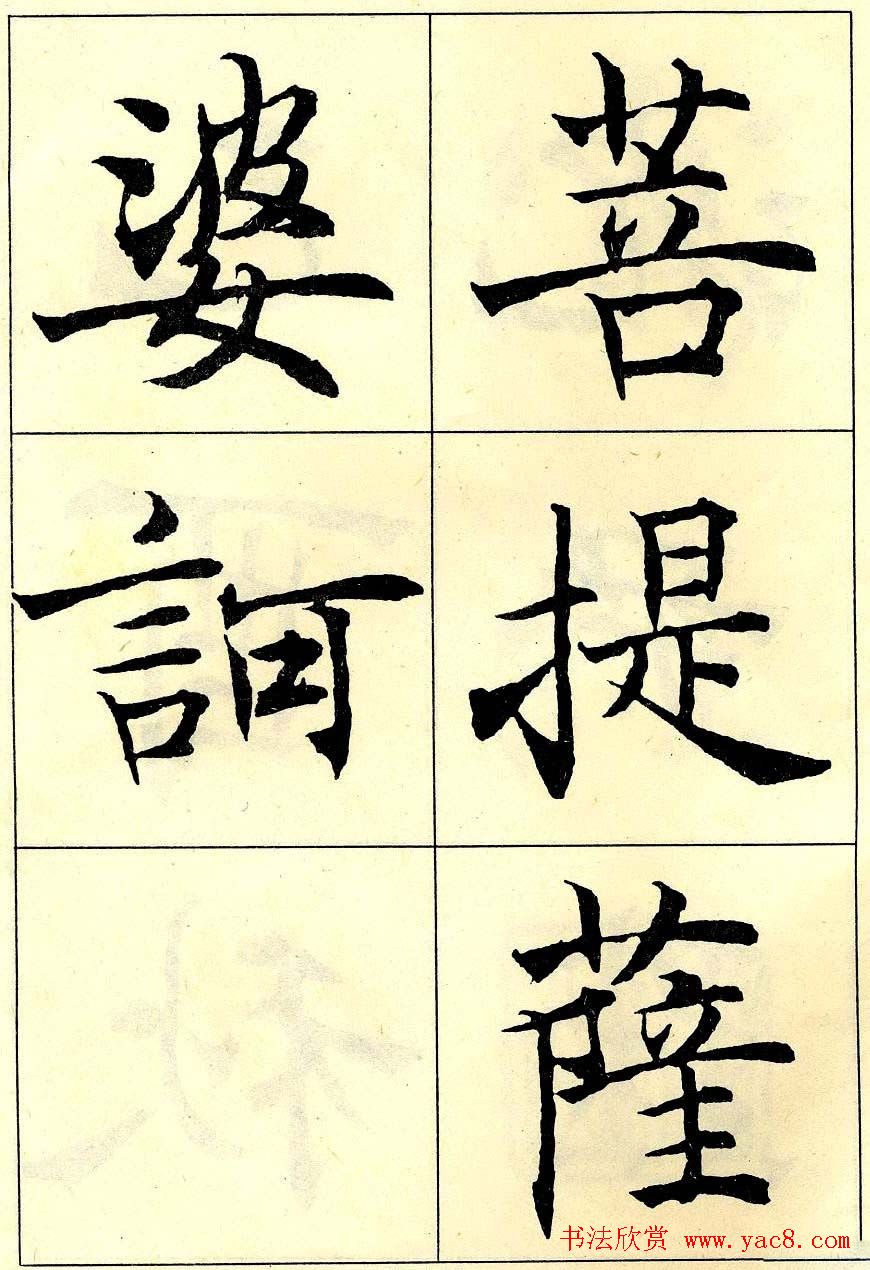 菩提薩
婆訶
书法欣赏 www.yac8.com